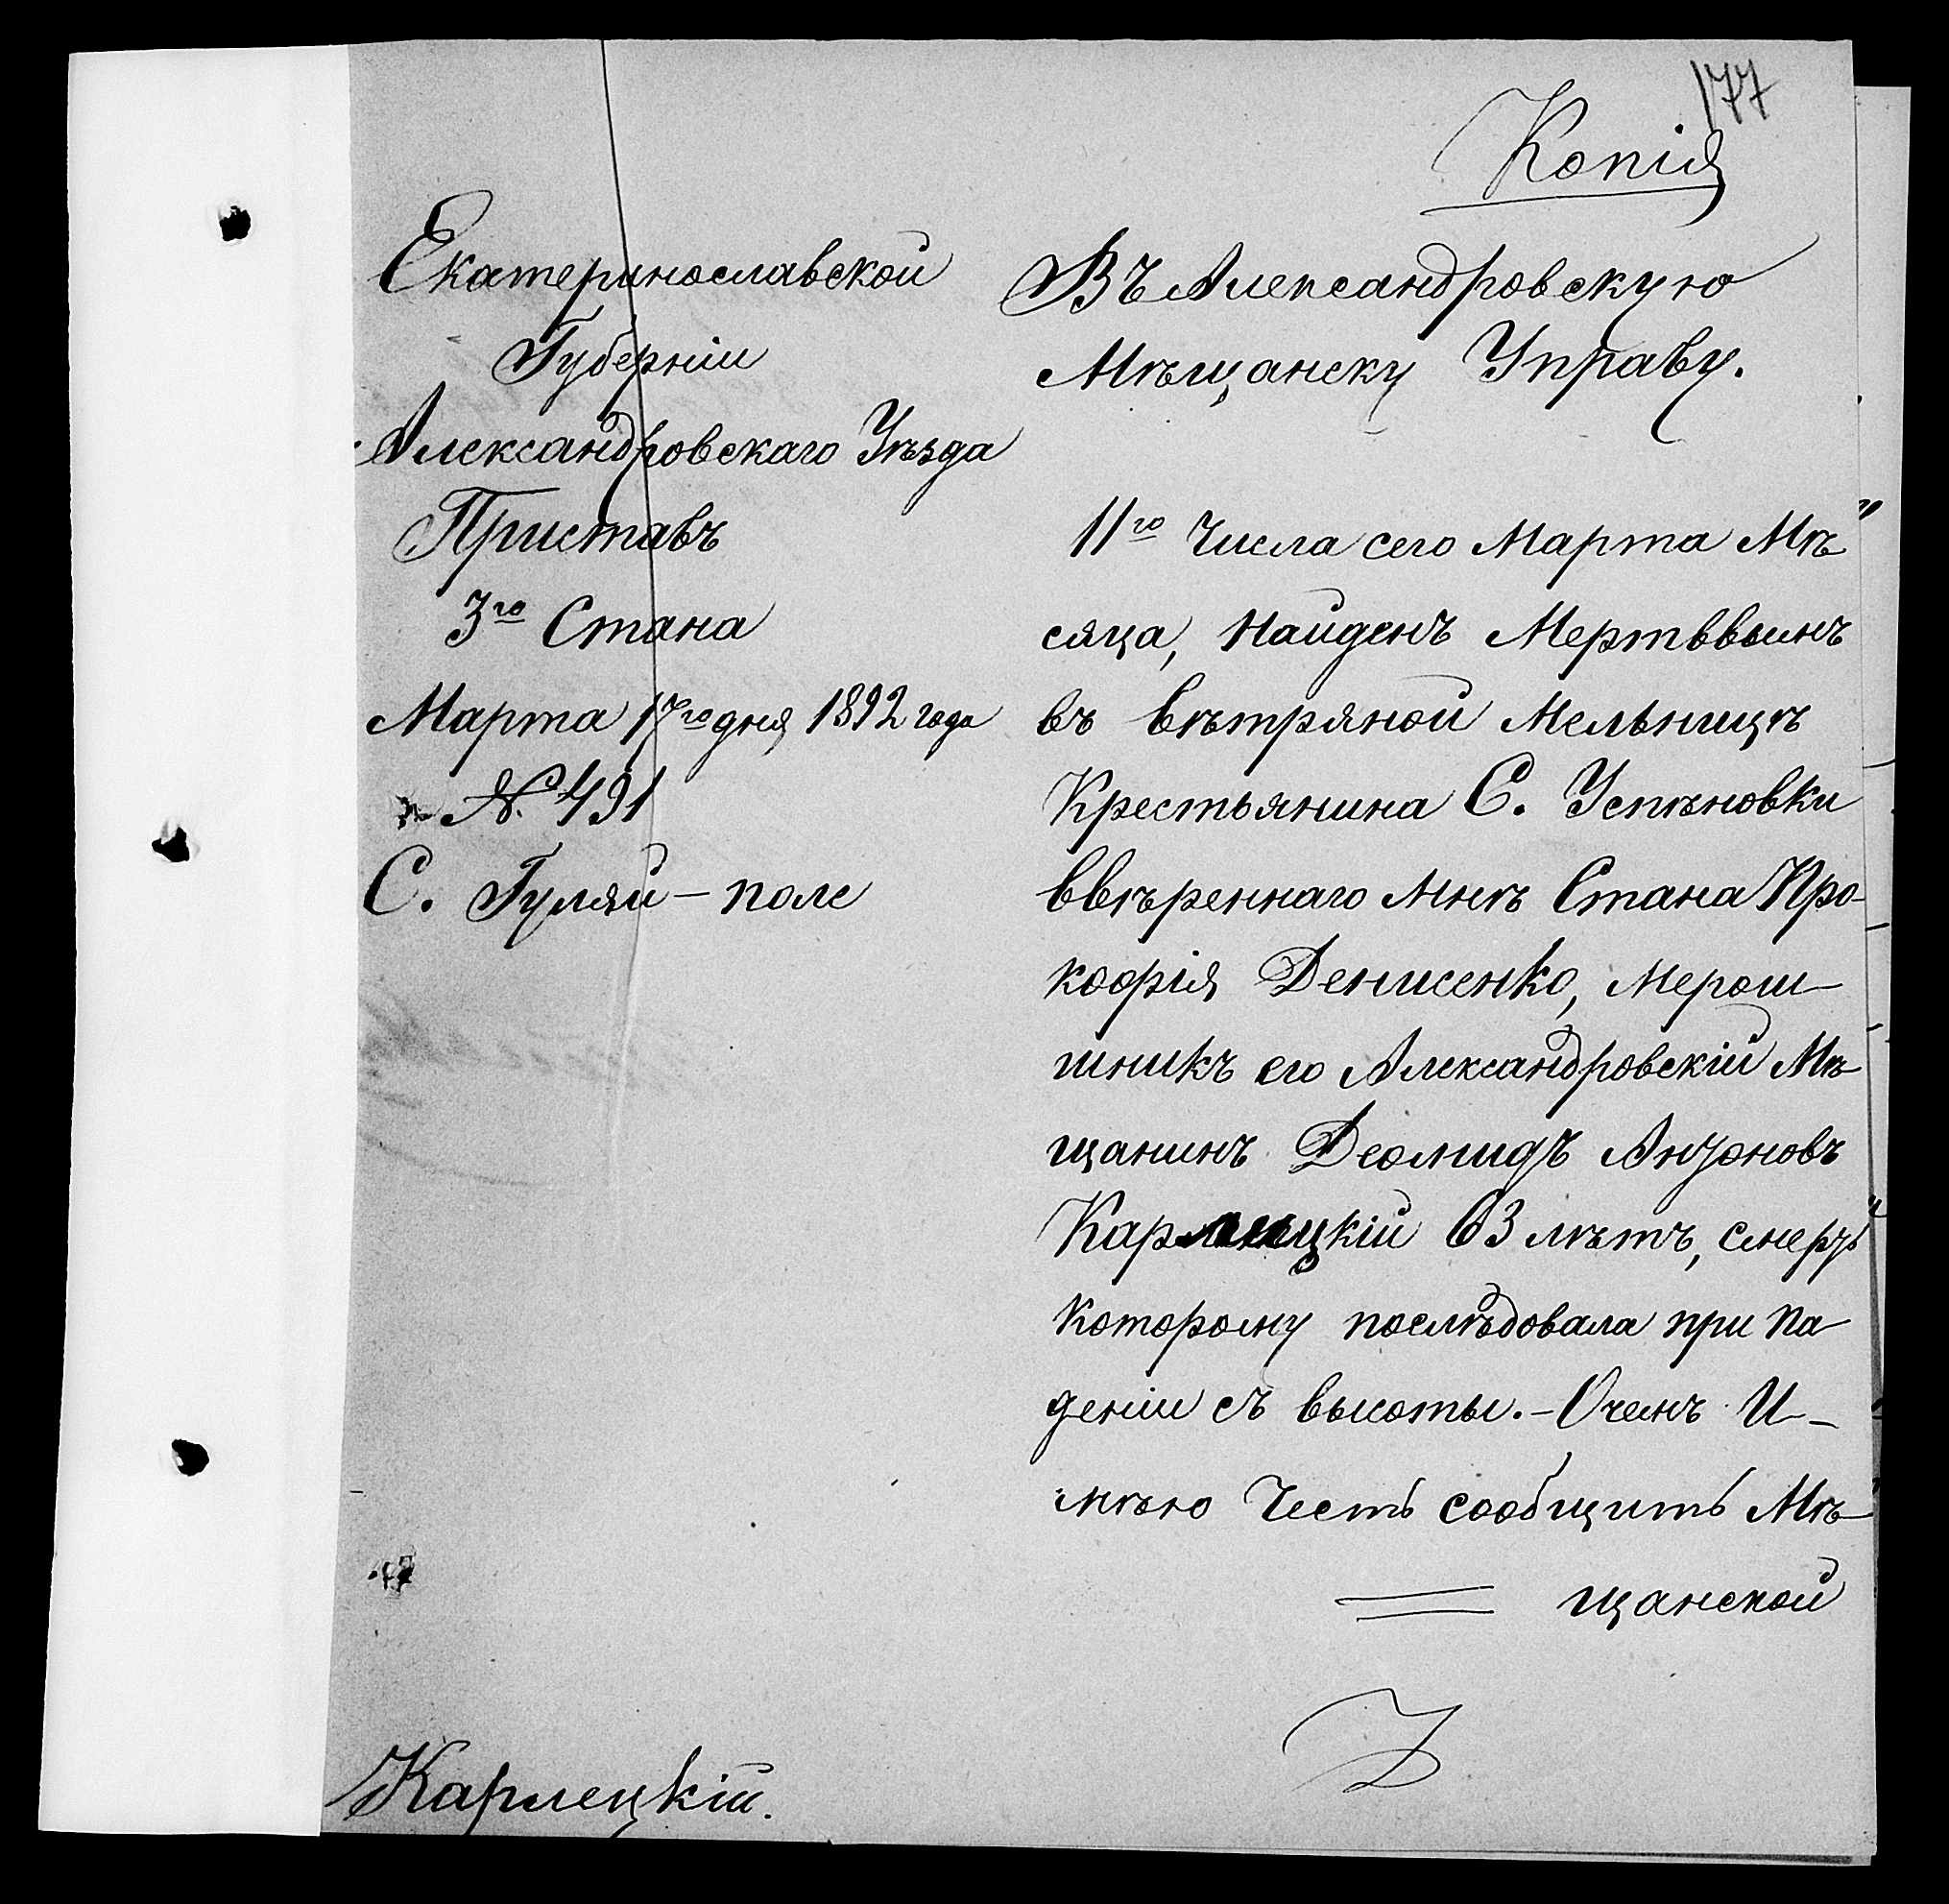 177
Копія
Екатеринославской
Губерніи
Александровскаго Уѣзда
Приставъ
3го Стана
Марта 17го дня 1892 года
№ 491
С. Гуляй-поле
Въ Александровскую
Мѣщанску Управу.
11го Числа сего Марта Мѣ"
сяца, Найденъ Мертввымъ
въ вѣтряной Мельницѣ
Крестьянина С. Успѣновки
ввѣреннаго Мнѣ Стана Про-
кофія Денисенко, Мерош-
шникъ его Александровскій Мѣ-
щанинъ Деомидъ Антоновъ
Карлецкій 63 лѣтъ, смерть"
Которому послѣдовала при Па-
деніи съ высоты.-О чемъ И-
мѣю Честь сообщить Мѣ-
щанской
Карлецкій.